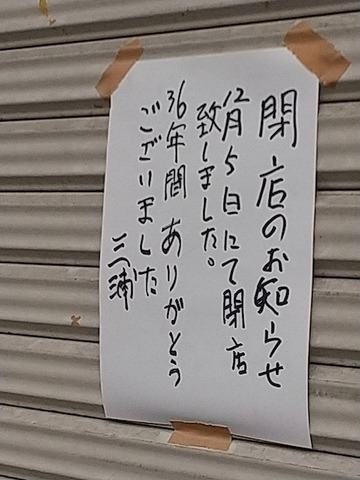 閉店のお知らせ
12月5日にて閉店
致しました。
36年間ありがとう
ございました
三浦